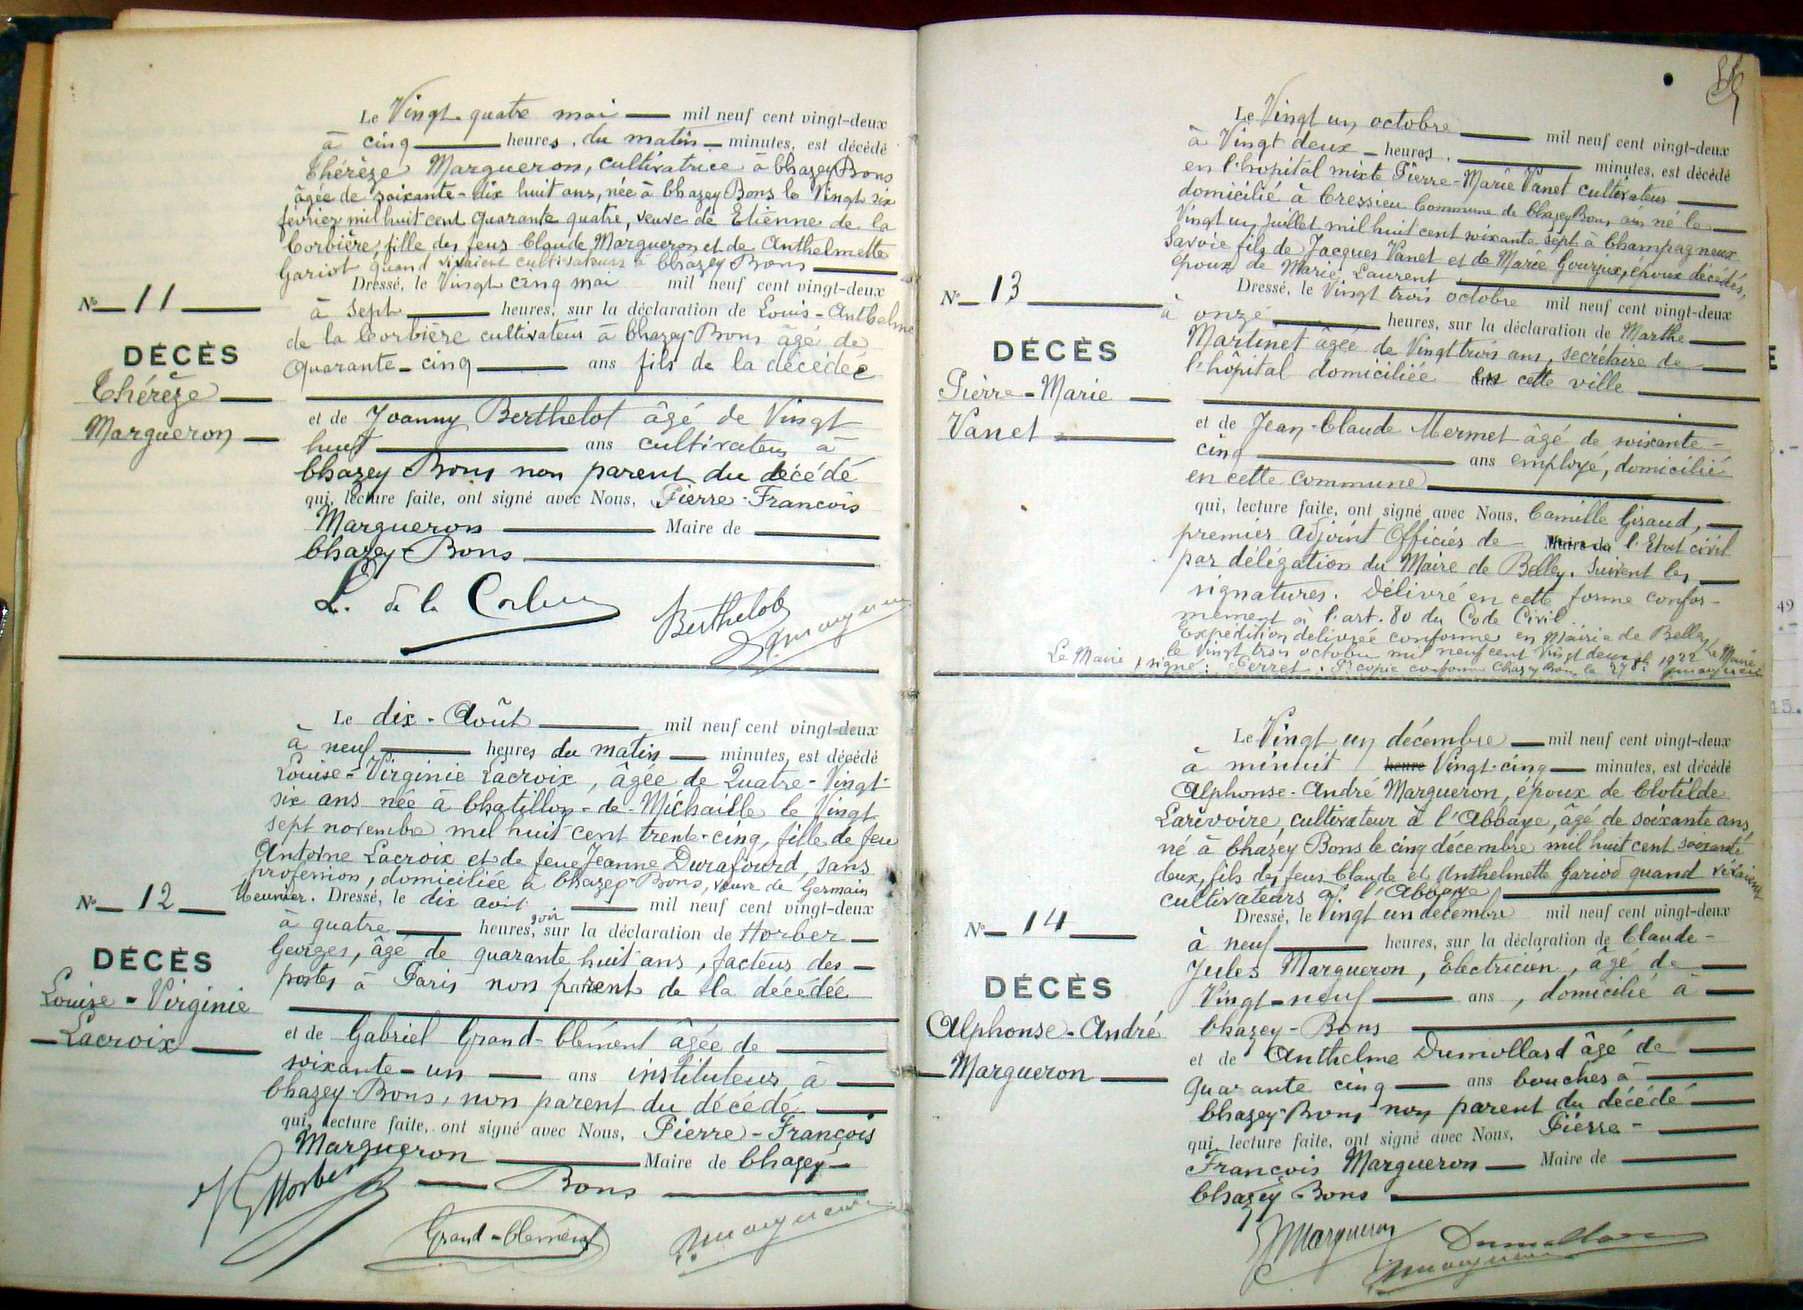 Le Vingt-quatre mai mil neuf cent vingt-deux
à cinq heures, du matin minutes, est décédé
Thérèze Margueron, cultivatrice à Chazey Bons
âgée de soixante-dix huit ans, née à Chazey Bons le Vingt six
février mil huit cent quarante quatre, veuve de Etiènne de la
Corbière, fille des feus Claude Margueron et de Anthelmette
Gariot quand vivaient cultivateurs à Chazey Bons
Dressé, le Vingt cinq mai mil neuf cent vingt-deux
à Sept heures, sur la déclaration de Louis-Anthelme
de la Corbière cultivateur à Chazey-Bons âgé de
quarante-cinq ans fils de la décédée
et de Joanny Berthelot âgé de Vingt
huit ans cultivateur à
Chazey Bons non parent du décédé
qui, lecture faite, ont signé avec Nous, Pierre-François
Margueron Maire de
Chazey-Bons
L. de la Corbière
Berthelot
Margueron
No 11
DÉCÈS
Thérèze
Margueron
Le dix-Août mil neuf cent vingt-deux
à neuf heures du matin minutes, est décédé
Louise-Virginie Lacroix, âgée de Quatre-Vingt-
six ans née à Chatillon-de-Michaille le Vingt
sept novembre mil huit cent trente-cinq, fille de feu
Antoine Lacroix et de feue Jeanne Durafourd, sans
profession, domiciliée à Chazey-Bons, veuve de Germain
Meunier. Dressé, le dix août mil neuf cent vingt-deux
à quatre heures, soir sur la déclaration de Horber
Georges, âgé de quarante huit ans, facteur des
postes à Paris non parent de la décédée
et de Gabriel Grand-Clément âgée de
soixante-un ans instituteur, à
Chazey-Bons, non parent du décédé
qui, lecture faite, ont signé avec Nous, Pierre-François
Margueron Maire de Chazey-
Bons
Horber
Grand-Clément
Margueron
No 12
DÉCÈS
Louise-Virginie
Lacroix
Le Vingt un octobre mil neuf cent vingt-deux
à Vingt deux heures, minutes, est décédé
en l'hopital mixte Pierre-Marie Vanet cultivateur
domicilié à Cressieu Commune de Chazey Bons ain né le
Vingt un Juillet mil huit cent soixante sept à Champagneux
Savoie fils de Jacques Vanet et de Marie Goujux, époux décédés,
époux de Marie Laurent
Dressé, le Vingt trois octobre mil neuf cent vingt-deux
à onze heures, sur la déclaration de Marthe
Martinet âgée de Vingt trois ans, secrétaire de
l'hôpital domiciliée en cette ville
et de Jean-Claude Mermet âgé de soixante-
cinq ans employé, domicilié
en cette commune
qui, lecture faite, ont signé avec Nous, Camille Giraud,
premier adjoint Officier de Maire de l'Etat civil
par délégation du Maire de Belley. Suivent les
signatures. Délivré en cette forme confor-
mément à l'art. 80 du Code Civil.
Expédition délivrée conforme en Mairie de Belley
le Vingt trois octobre mil neuf cent Vingt deux
Le Maire, signé: Perret. Pr copie conforme Chazey Bons le 27 8bre 1922 Le Maire Margueron
No 13
DÉCÈS
Pierre-Marie
Vanet
Le Vingt un décembre mil neuf cent vingt-deux
à minuit heure Vingt-cinq minutes, est décédé
Alphonse-André Margueron, époux de Clotilde
Larivoire, cultivateur à l'Abbaye, âgé de soixante ans,
né à Chazey Bons le cinq décembre mil huit cent soixante
deux, fils des feus Claude et Anthelmette Gariod quand vivaient
cultivateurs à l'Abbaye
Dressé, le Vingt un décembre mil neuf cent vingt-deux
à neuf heures, sur la déclaration de Claude-
Jules Margueron, Electricien, âgé de
Vingt-neuf ans, domicilié à
Chazey-Bons
et de Anthelme Dumollard âgé de
quarante cinq ans boucher à
Chazey-Bons non parent du décédé
qui, lecture faite, ont signé avec Nous, Pierre-
François Margueron Maire de
Chazey-Bons
Margueron
Dumollard
Margueron
No 14
DÉCÈS
Alphonse-André
Margueron